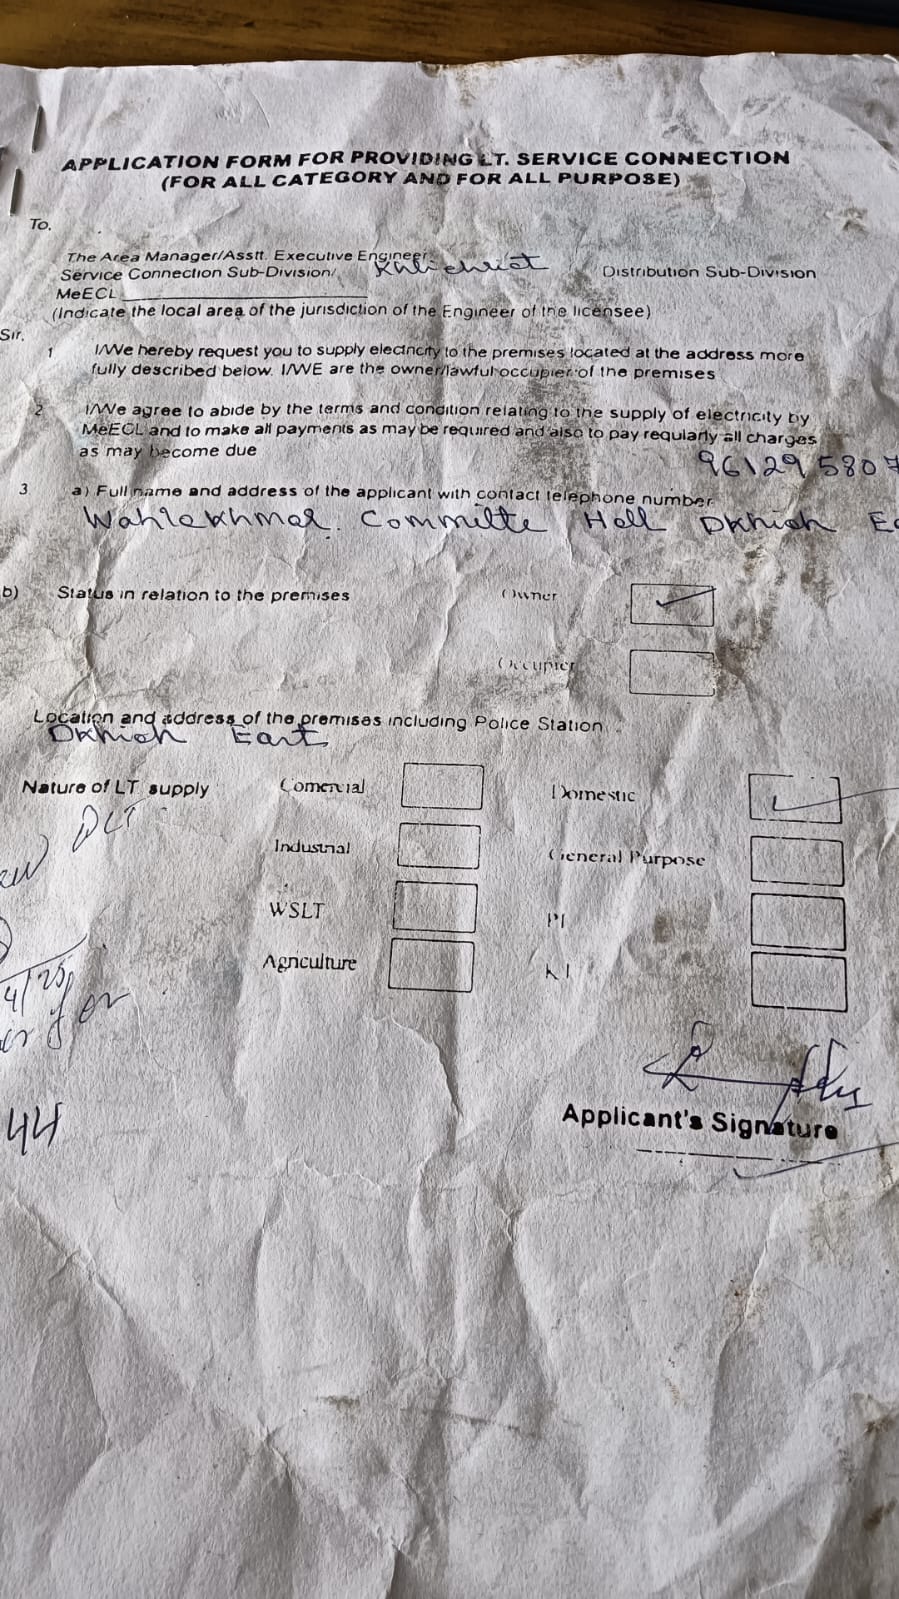 APPLICATION FORM FOR PROVIDING LT. SERVICE CONNECTION
(FOR ALL CATEGORY AND FOR ALL PURPOSE)
To,
The Area Manager/Asstt. Executive Engineer
Service Connection Sub-Division/ Khliehriat Distribution Sub-Division
MeECL
(Indicate the local area of the jurisdiction of the Engineer of the licensee)
Sir,
1 I/We hereby request you to supply electricity to the premises located at the address more
fully described below. I/WE are the owner/lawful occupier of the premises
2 I/We agree to abide by the terms and condition relating to the supply of electricity by
MeECL and to make all payments as may be required and also to pay regularly all charges
as may become due
961295807
3 a) Full name and address of the applicant with contact telephone number
Wahlakhmar. Committe Hall Dkhiah Ea
b) Status in relation to the premises Owner
Occupier
Location and address of the premises including Police Station
Dkhiah East
Nature of LT supply Comercial Domestic
DLT
Industrial General Purpose
WSLT PL
Agriculture KJ
4/25
44
Applicant's Signature